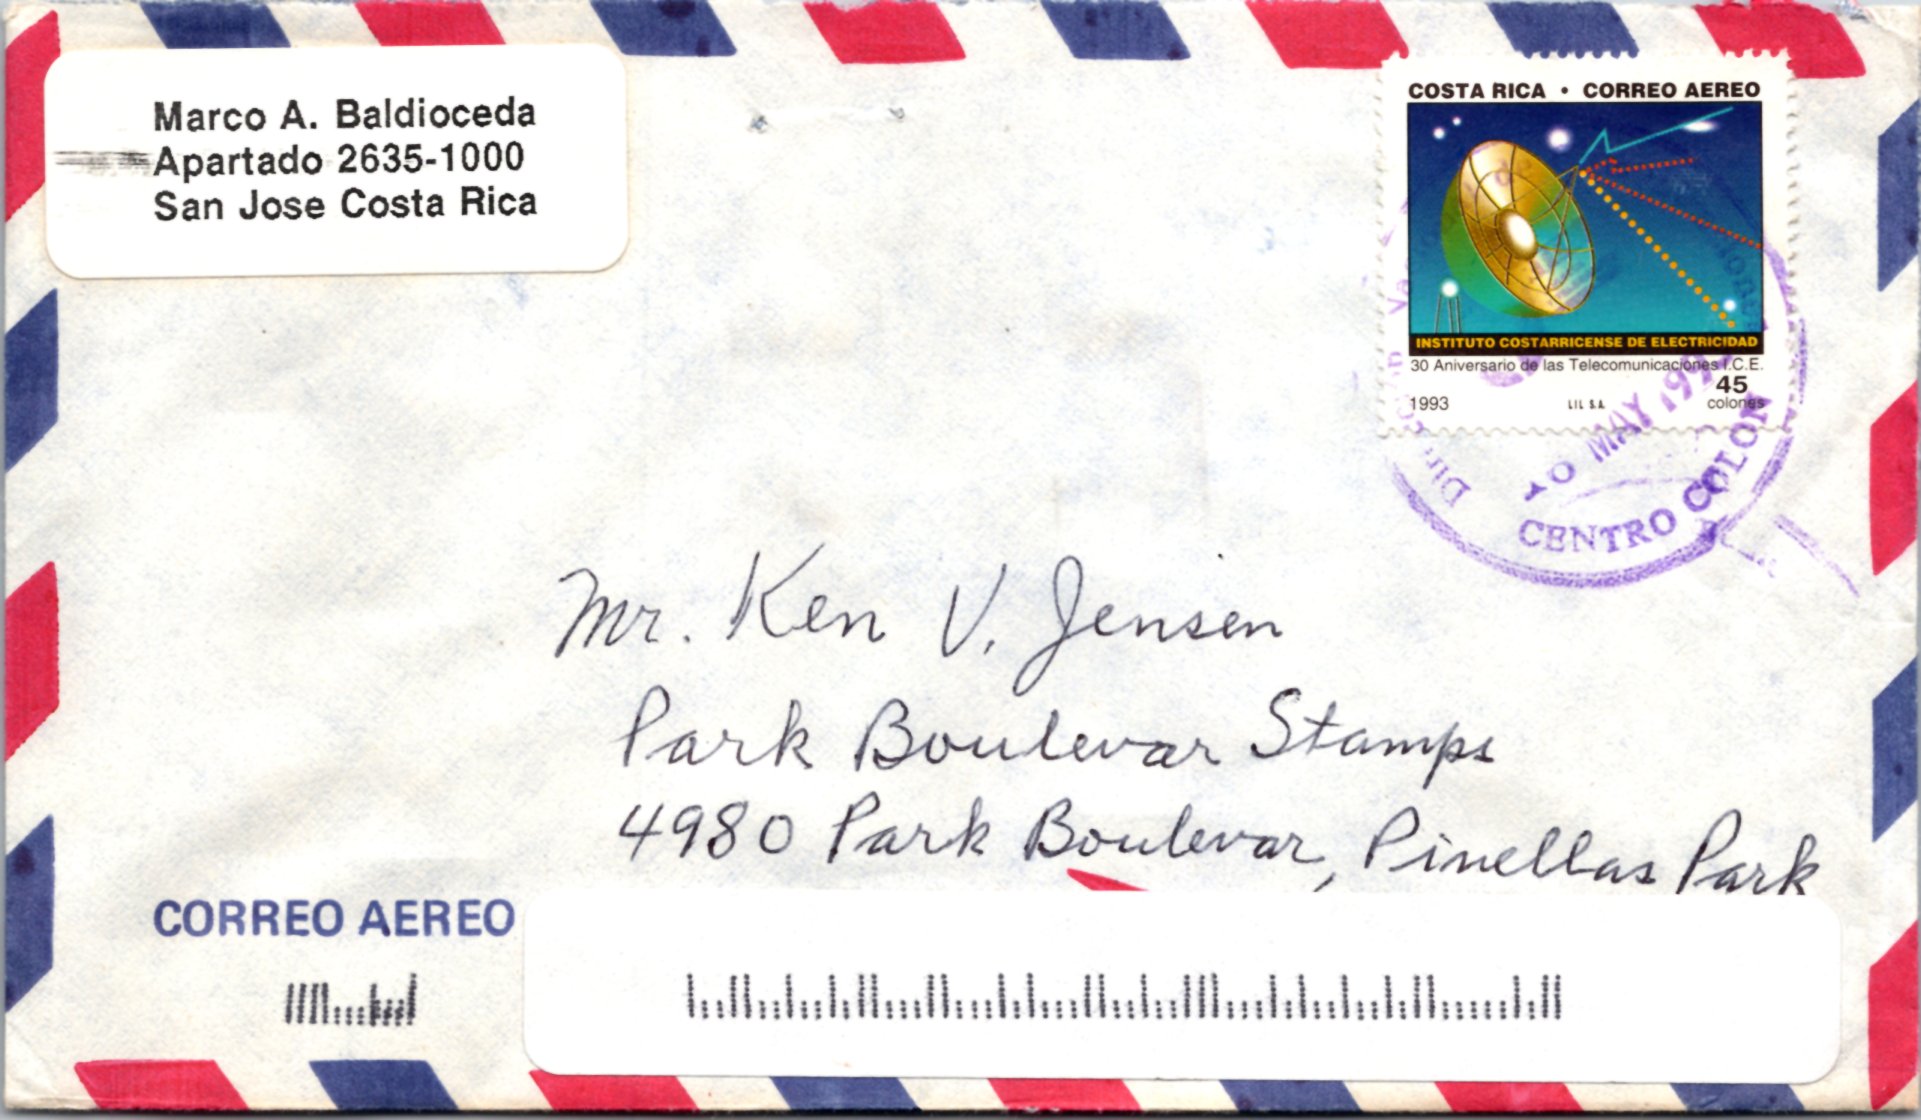 Marco A. Baldioceda
Apartado 2635-1000
San Jose Costa Rica
COSTA RICA • CORREO AEREO
INSTITUTO COSTARRICENSE DE ELECTRICIDAD
30 Aniversario de las Telecomunicaciones I.C.E.
45
1993 LIL S.A. colones
MAY
CENTRO COLON
Mr. Ken V. Jensen
Park Boulevar Stamps
4980 Park Boulevar, Pinellas Park
CORREO AEREO